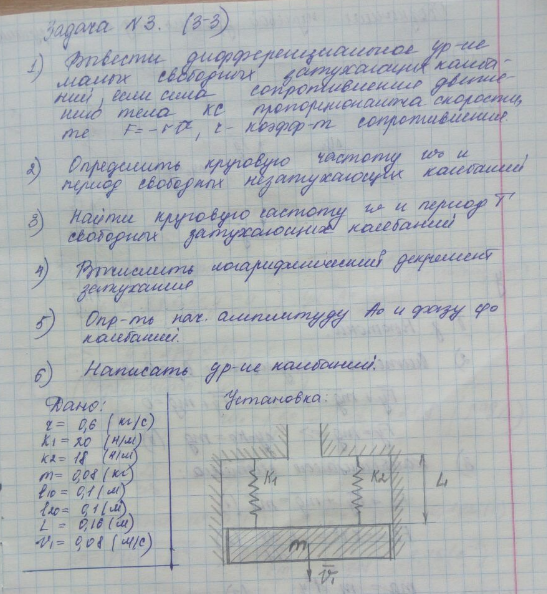 Задача №3. (3-3)
1) Вывести дифференциальное ур-ие
малых свободных затухающих колеба-
ний, если сила сопротивления движе-
нию тела КС пропорциональна скорости,
те F = -rv̄, r- коэфф-т сопротивления
2) Определить круговую частоту ω₀ и
период свободных незатухающих колебаний
3) Найти круговую частоту ω и период T
свободных затухающих колебаний
4) Вычислить логарифмический декремент
затухания
5) Опр-ть нач. амплитуду A₀ и фазу φ₀
колебаний.
6) Написать ур-ие колебаний.
Дано:
r = 0,6 (кг/с)
K₁ = 20 (н/м)
K₂ = 18 (н/м)
m = 0,08 (кг)
l₁₀ = 0,1 (м)
l₂₀ = 0,1 (м)
L = 0,16 (м)
V₁ = 0,08 (м/с)
Установка:
K₁
K₂
L
m
v̄₁